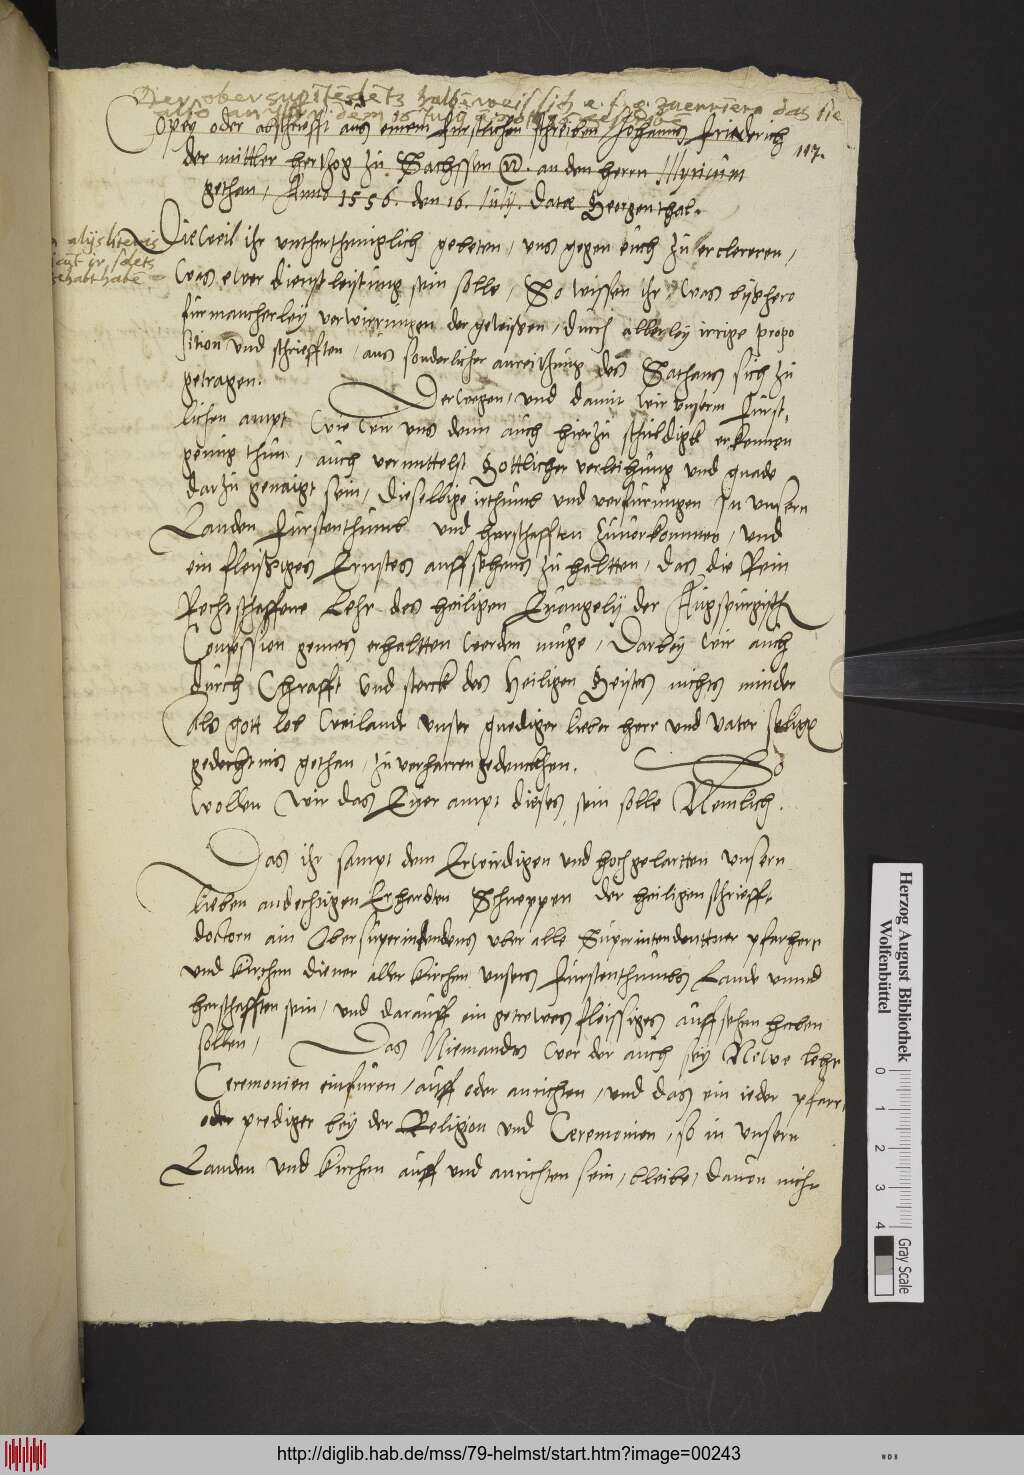 Der obersuperitēdēts halbē weis sich e. f. g. zuerinern das sie
also an yllyri. dem 16 July a° 56
Copey oder abschriefft aus einem fürstlichen schreiben Johannis Friederich
117.
der mittler herzog zu Sachssen etc. an den herrn Illyricum
gethan, Anno 1556. den 16. July. Datae Georgenthal.
Dieweil ihr unthertheniglich gebeten, uns gegen euch zu ercleren,
Was ewer dienstleistung sein solle, So wissen ihr, was byßhero
für mancherley verwirrungen der gewißen, durch allerley irrige propo
sition und schriefften, aus sonderlicher anreitzung des Sathans sich zu
getragen.
Derwegen, und damit wir unserm Fürst,
lichen ampt wie wir uns denn auch hierzu schuldigk erkennen
genug thun, auch vermittelst Gottlicher verleihung und gnade
darzu genaigt sein, dieselbige irthumb und verfurungen In unsern
Landen Fürstenthumb und herschafften zuuorkommen, und
ein fleißiges Ernstes auffsehens zu haltten, das die Rein
Rechtschaffene Lehr des heiligen Euangelij der Augspurgisch
Confession gemes erhaltten werden muge, Darbey wir auch
durch Chrafft und sterck des Heiligen Geystes nichts minder
als gott lob weilandt unser gnediger lieber herr und vater seliger
gedechtnis gethan, zu verharren gedenckhen.
So
wollen wir das Ewer ampt dieses sein solle Nemlich.
Das ihr sampt dem Erwirdigen und hochgelartten unsern
lieben andechtigen Erhardten Schneppen der heiligen schriefft
doctorn ain Obersuperindendens uber alle Superintendenttner pfarherr
und kirchen diener aller kirchen unsers Fürstenthumbs Lande unnd
herschafften sein, und darauff ein getrewes fleissiges auffsehen haben
sollen,
Das Niemandts wer der auch sey Newe lehr
Ceremonien einfüren, auff oder anrichten, und das ein ieder pfarr,
oder prediger bey der Religion und Ceremonien, so in unsern
Landen und kirchen auff und anrichten sein, bleibe, dauon nicht
Herzog August Bibliothek
Wolfenbüttel
0 1 2 3 4
Gray Scale
http://diglib.hab.de/mss/79-helmst/start.htm?image=00243